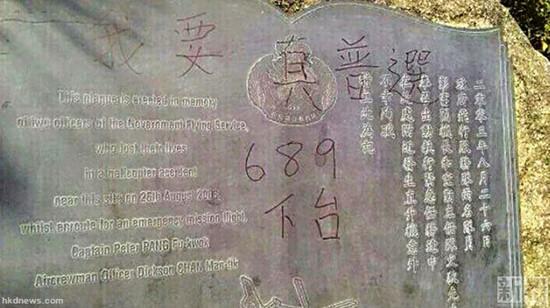 我要真普選
689
下台
This plaque is erected in memory
of two officers of the Government Flying Service,
who lost their lives
in a helicopter accident
near this site on 26th August 2003,
whilst enroute for an emergency mission flight.
Captain Peter PANG Fu-kwok
Aircrewman Officer Dickson CHAN Man-tik
二零零三年八月二十六日
政府飛行服務隊兩名隊員
彭富國機長和空勤主任陳文
執行緊急任務途中
處附近發生直升機意外
不幸殉職
特立此為記
hkdnews.com